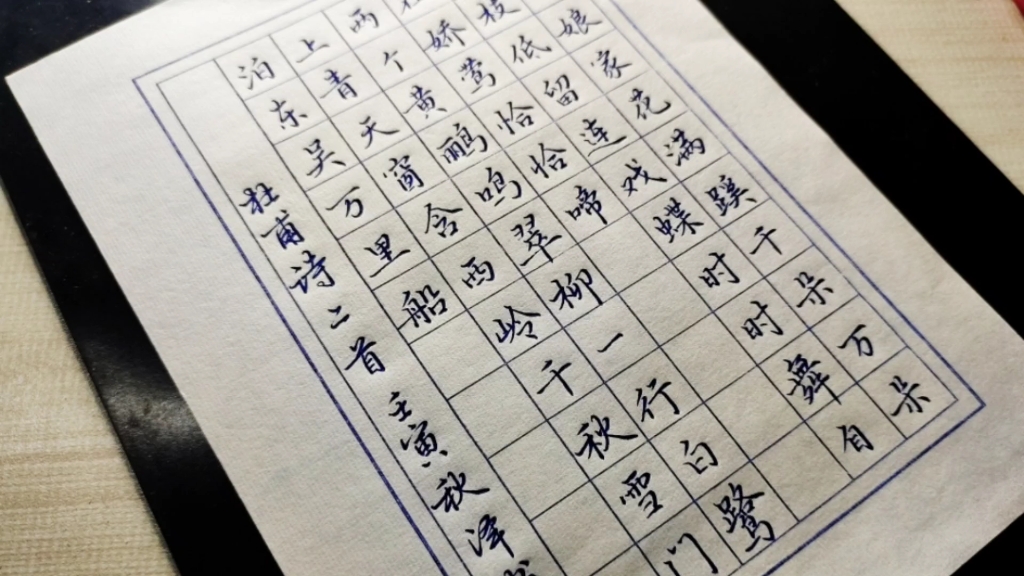 娘家花满蹊千朵万朵
枝低留连戏蝶时时舞自
娇莺恰恰啼
两个黄鹂鸣翠柳一行白鹭
上青天窗含西岭千秋雪门
泊东吴万里船
杜甫诗二首 壬寅秋津